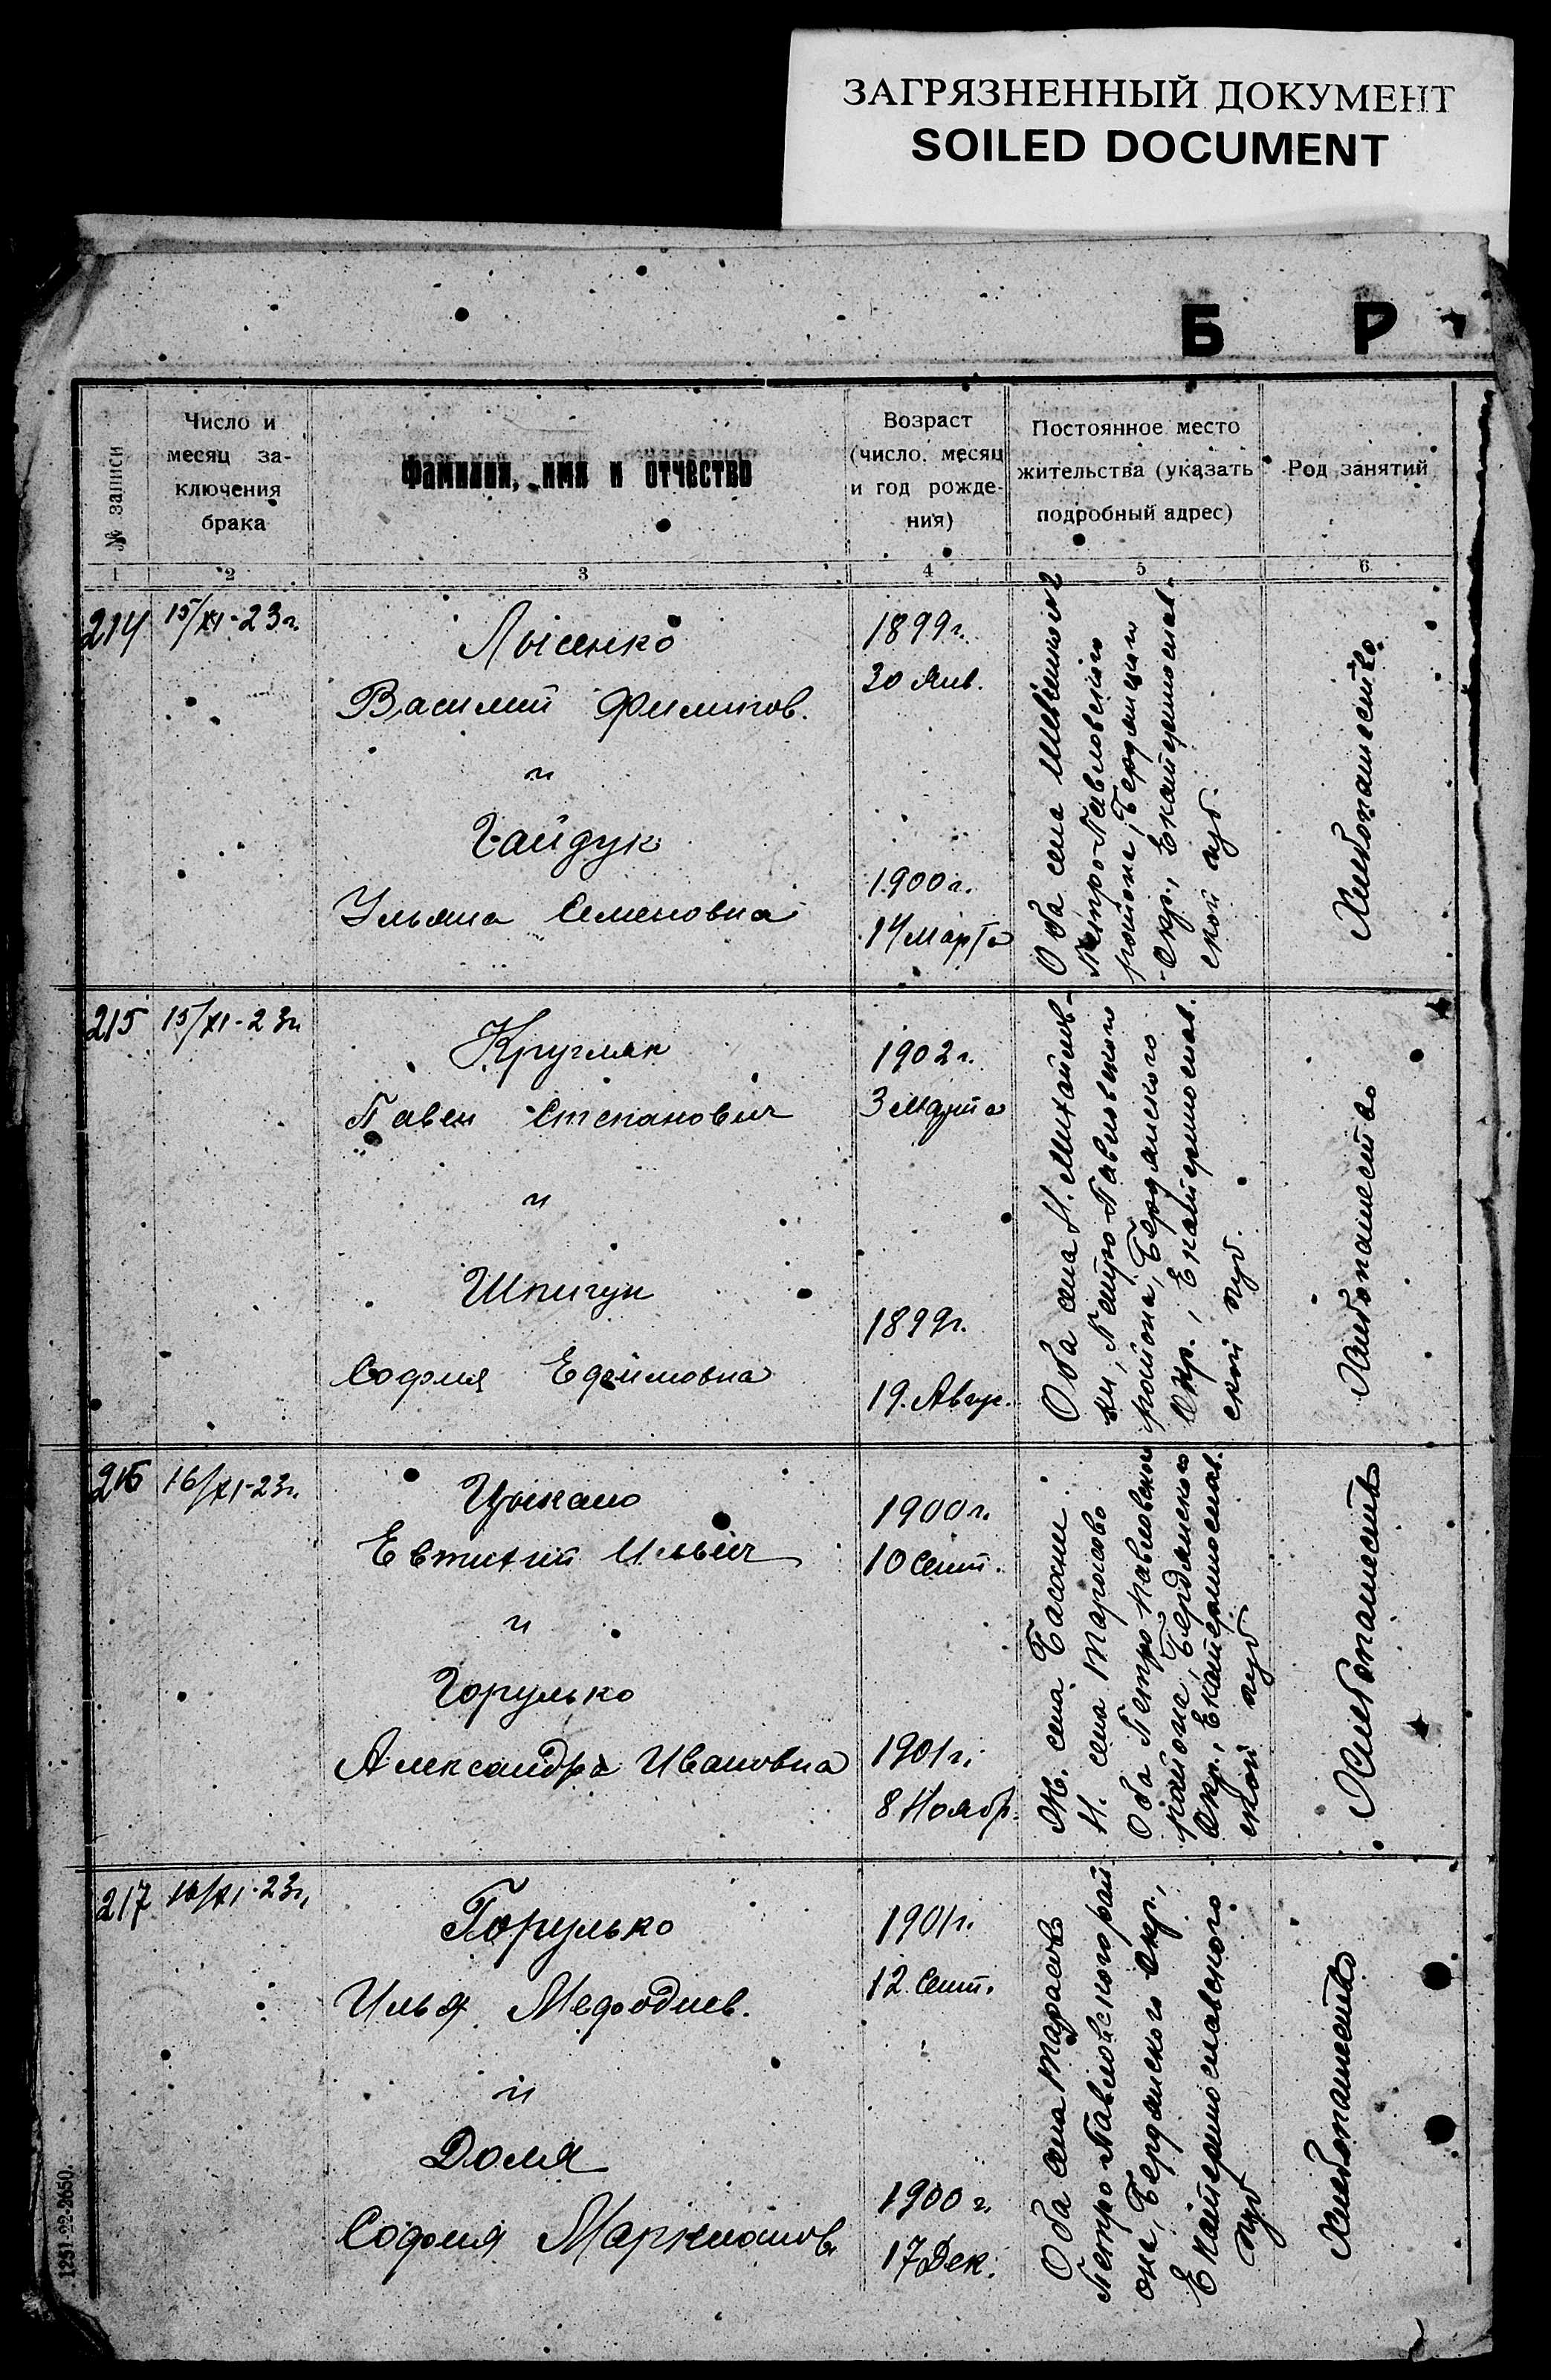 ЗАГРЯЗНЕННЫЙ ДОКУМЕНТ
SOILED DOCUMENT
Б Р
№ записи
Число и
месяц за-
ключения
брака
Фамилия, имя и отчество
Возраст
(число, месяц
и год рожде-
ния)
Постоянное место
жительства (указать
подробный адрес)
Род занятий
1 2 3 4 5 6
214
15/XI-23г.
Лысенко
Василий Филипов.
и
Гайдук
Ульяна Семеновна
1899г.
20 Янв.
1900г.
14 Марта
Оба села
Петро-Павловского
района, Бердянского
Окр., Екатеринослав-
ской губ.
Хлебопашество
215
15/XI-23г
Кругляк
Павел Степанович
и
Шпигун
София Ефимовна
1902г.
3 Марта
1899г.
19. Авгус.
Оба села Н. Михайлов-
ки, Петро-Павловского
района, Бердянского
Окр., Екатеринослав.
ской губ.
Хлебопашество
216
16/XI-23г.
Евтихий Ильич
и
Горулько
Александра Ивановна
1900г.
10 Сент.
1901г.
8 Ноябр.
Ж. села
Н. села Тарасово
Оба Петро-Павловского
района, Бердянского
Окр., Екатеринослав.
ской губ
Хлебопашество
217
16/XI-23г.
Горулько
Илья Мефодиев.
и
Доля
София Маркианов.
1901г.
12 Сент.
1900 г.
17 Дек.
Оба села Тарасов
Петро-Павловского рай
она, Бердянского Окр.,
Екатеринославского
губ
Хлебопашество
1251-22-2650.